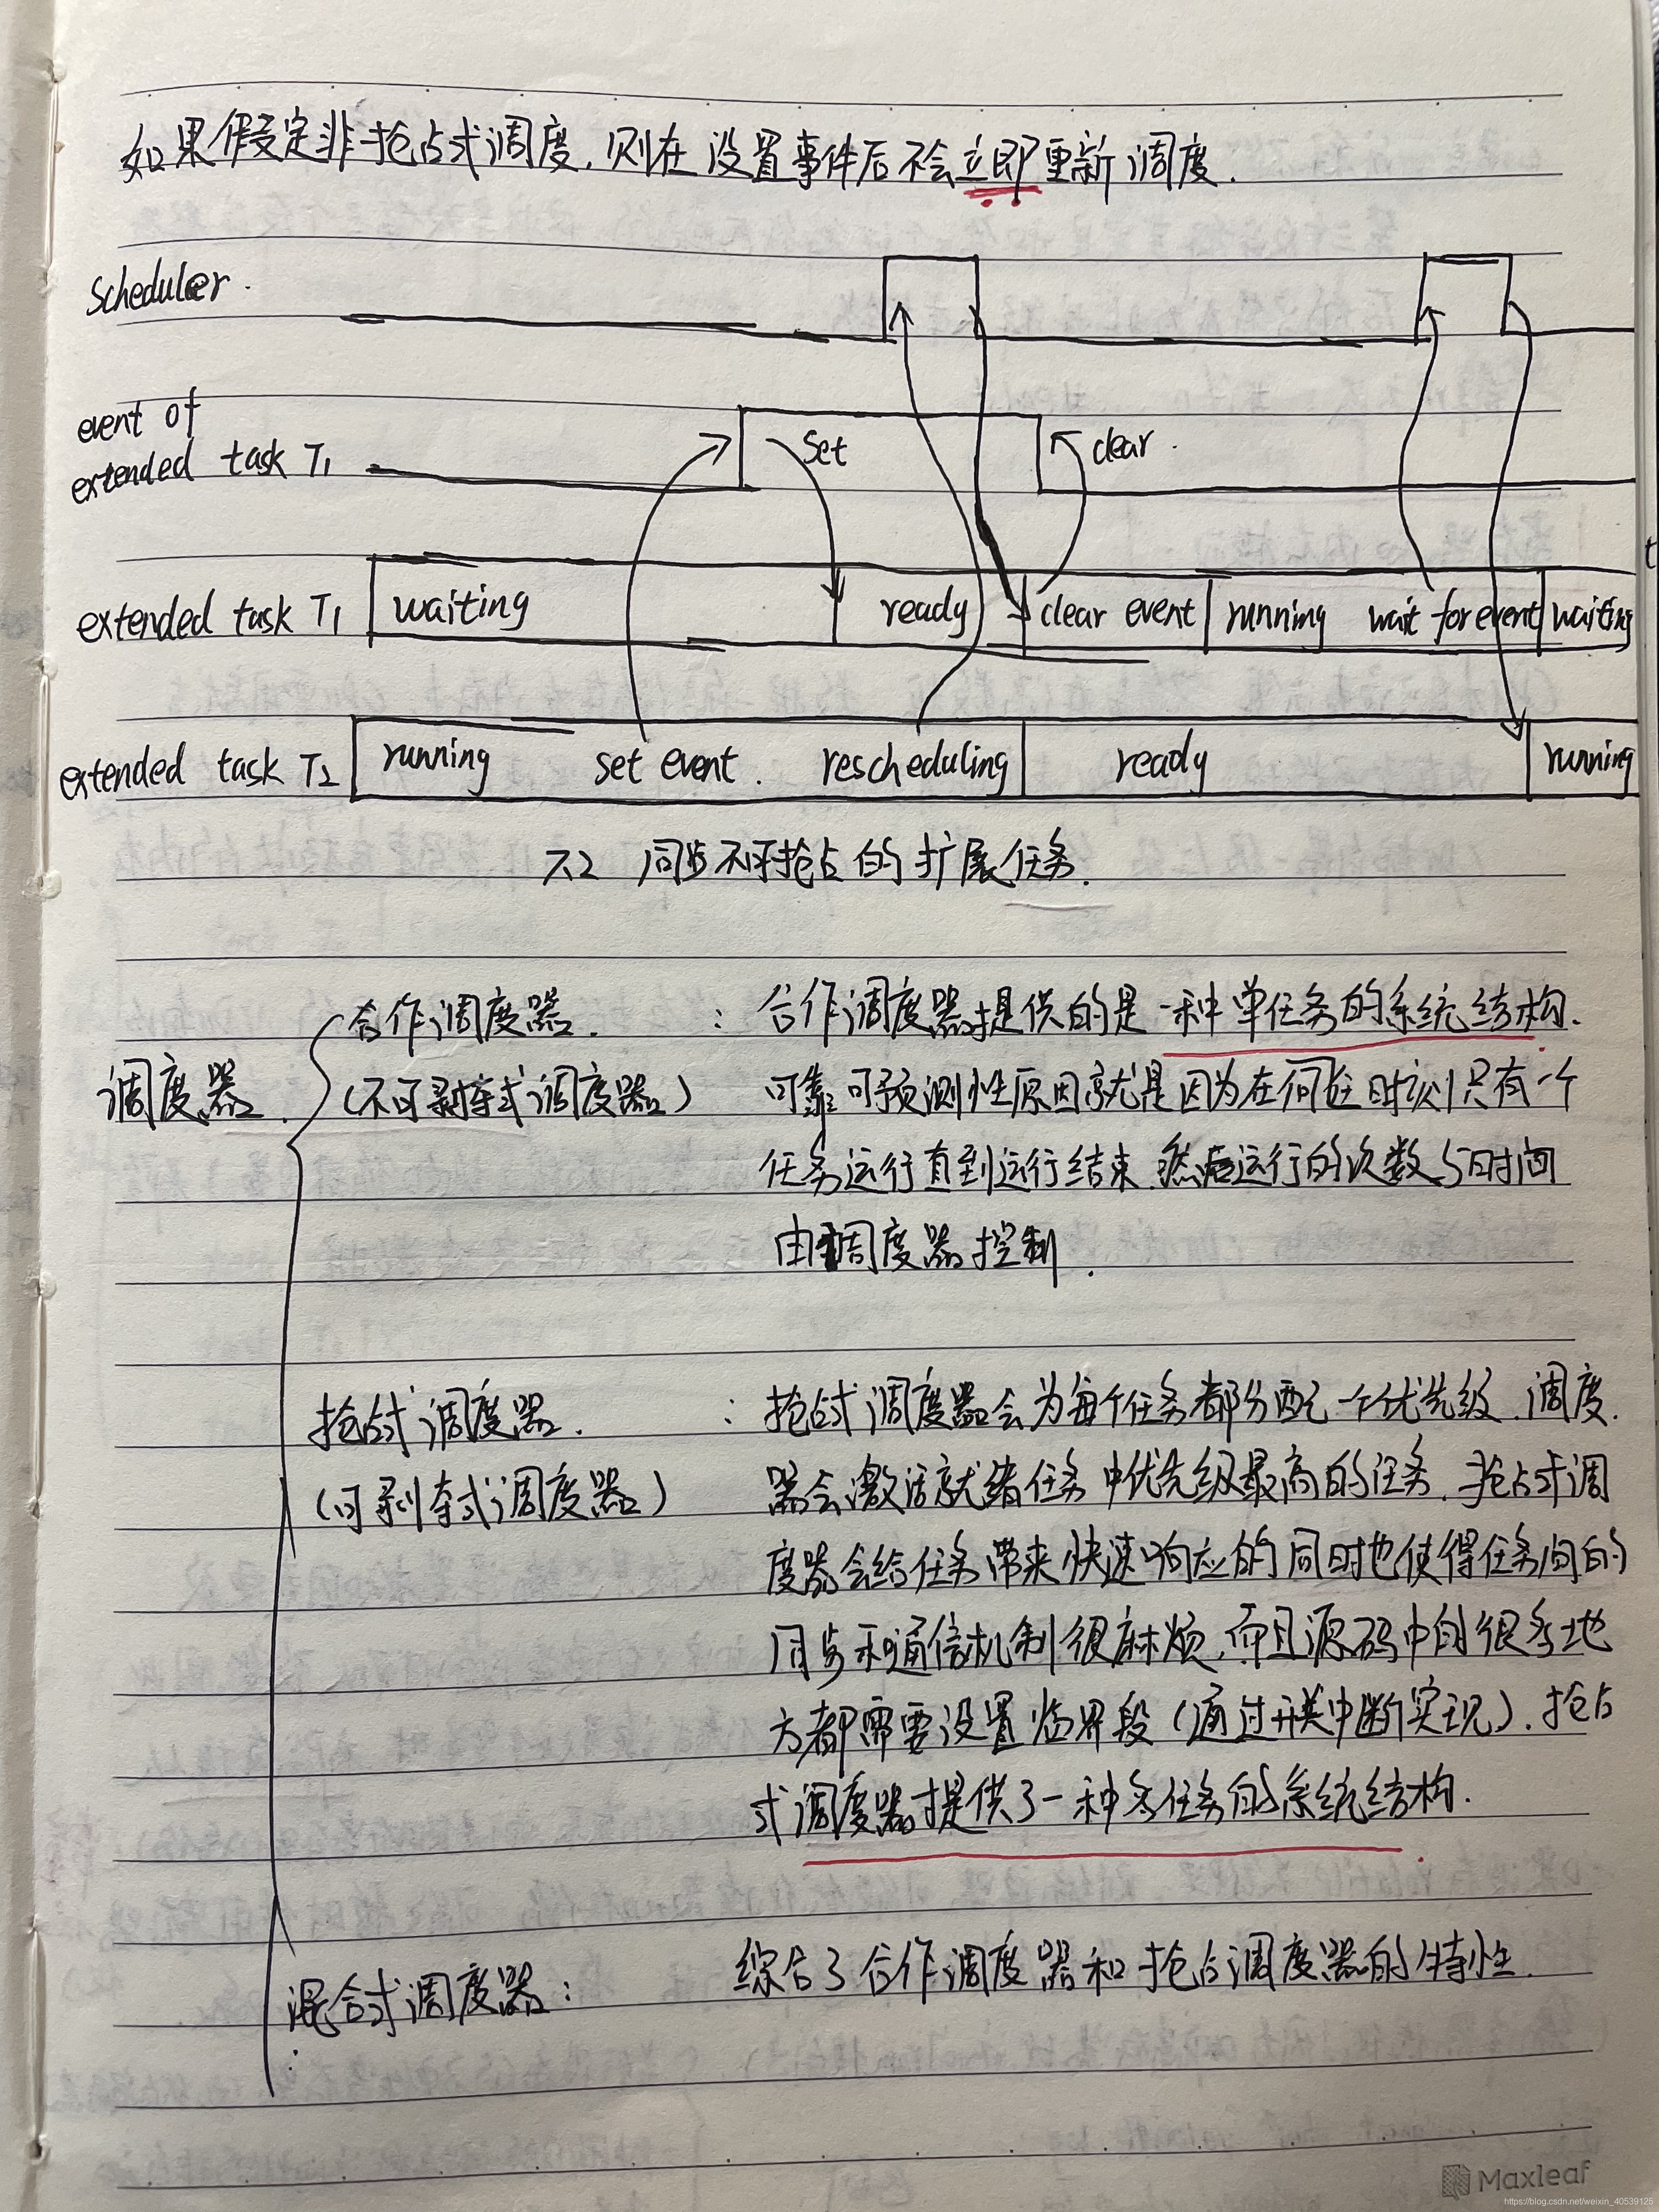 如果假定非抢占式调度,则在设置事件后不会立即重新调度.
Scheduler.
event of
extended task T1
set
clear.
t
extended task T1 waiting ready clear event running wait for event waiting
extended task T2 running set event. rescheduling ready running
7.2 同步不可抢占的扩展任务.
合作调度器. : 合作调度器提供的是一种单任务的系统结构.
调度器. (不可剥夺式调度器) 可靠可预测性原因就是因为在何任时刻只有一个
任务运行直到运行结束.然后运行的次数与时间
由调度器控制.
抢占式调度器. : 抢占式调度器会为每个任务都分配一个优先级.调度.
(可剥夺式调度器) 器会激活就绪任务中优先级最高的任务.抢占式调
度器会给任务带来快速响应的同时也使得任务间的
同步和通信机制很麻烦,而且源码中的很多地
方都需要设置临界段(通过开关中断实现).抢占
式调度器才提供了一种多任务的系统结构.
混合式调度器: 综合了合作调度器和抢占调度器的特性.
Maxleaf
https://blog.csdn.net/weixin_40539125